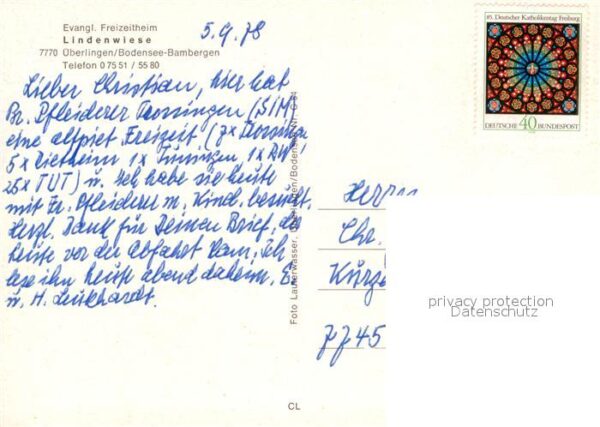 Evangl. Freizeitheim
Lindenwiese
7770 Überlingen/Bodensee-Bambergen
Telefon 0 75 51 / 55 80
5.9.78
85. Deutscher Katholikentag Freiburg
DEUTSCHE 40 BUNDESPOST
Lieber Christian, hier hat
Br. Pfleiderer Trossingen (SIM)
eine altpiet Freizeit. (7x Trossingen
5x Rietheim 1x Tuningen, 1x RW
25x TUT) u. Ich habe sie heute
mit Fr. Pfleiderer m. Kind. besucht.
Herzl. Dank für Deinen Brief, der
heute vor der Abfahrt kam. Ich
lese ihn heute abend daheim.
u. H. Leukhardt.
Foto Lauterwasser,
Herrn
Chr.
7745
privacy protection
Datenschutz
CL